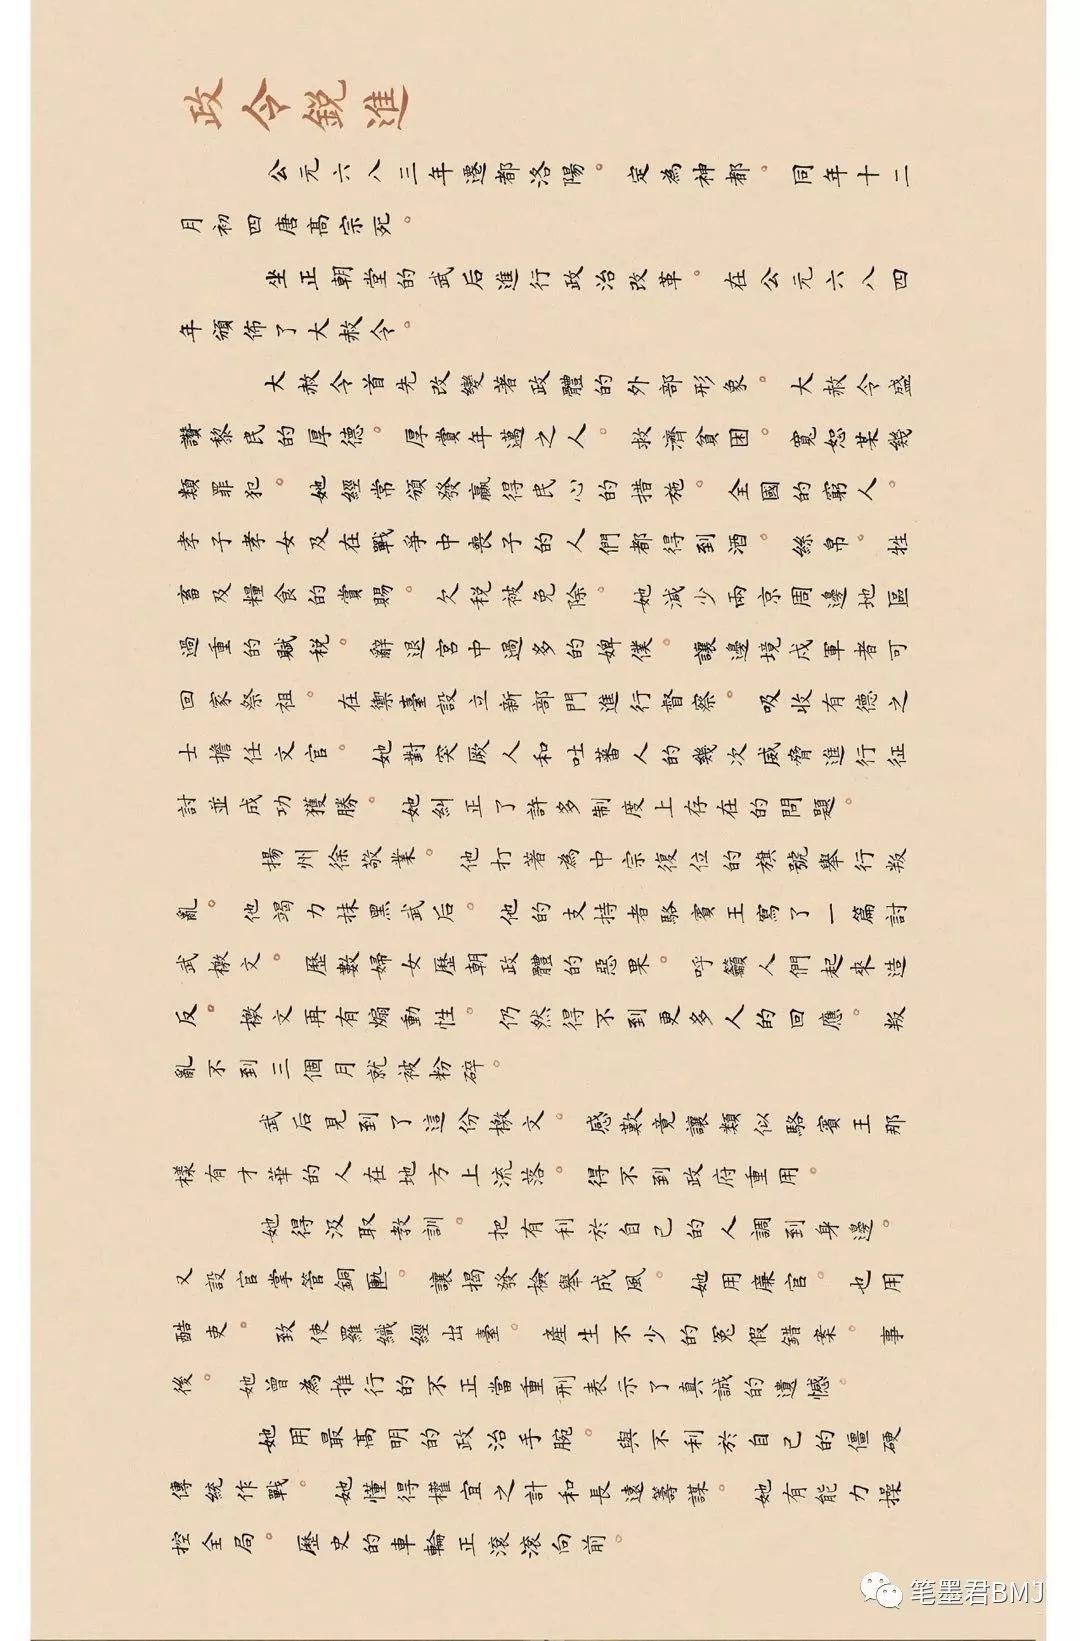 政令鋭進
公元六八三年遷都洛陽。定為神都。同年十二
月初四唐高宗死。
坐正朝堂的武后進行政治改革。在公元六八四
年頒佈了大赦令。
大赦令首先改變著政體的外部形象。大赦令盛
讚黎民的厚德。厚賞年邁之人。救濟貧困。寬恕某幾
類罪犯。她經常頒發贏得民心的措施。全國的窮人。
孝子孝女及在戰爭中喪子的人們都得到酒。絲帛。牲
畜及糧食的賞賜。欠税被免除。她減少兩京周邊地區
過重的賦税。辭退宮中過多的婢僕。讓邊境戍軍者可
回家祭祖。在禦臺設立新部門進行督察。吸收有德之
士擔任文官。她對突厥人和吐蕃人的幾次威脅進行征
討並成功獲勝。她糾正了許多制度上存在的問題。
揚州徐敬業。他打著為中宗復位的旗號舉行叛
亂。他竭力抹黑武后。他的支持者駱賓王寫了一篇討
武檄文。歷數婦女歷朝政體的惡果。呼籲人們起來造
反。檄文再有煽動性。仍然得不到更多人的回應。叛
亂不到三個月就被粉碎。
武后見到了這份檄文。感歎竟讓類似駱賓王那
樣有才華的人在地方上流落。得不到政府重用。
她得汲取教訓。把有利於自己的人調到身邊。
又設官掌管銅匭。讓揭發檢舉成風。她用廉官。也用
酷吏。致使羅織經出臺。產生不少的冤假錯案。事
後。她曾為推行的不正當重刑表示了真誠的遺憾。
她用最高明的政治手腕。與不利於自己的僵硬
傳統作戰。她懂得權宜之計和長遠籌謀。她有能力操
控全局。歷史的車輪正滾滾向前。
笔墨君BMJ